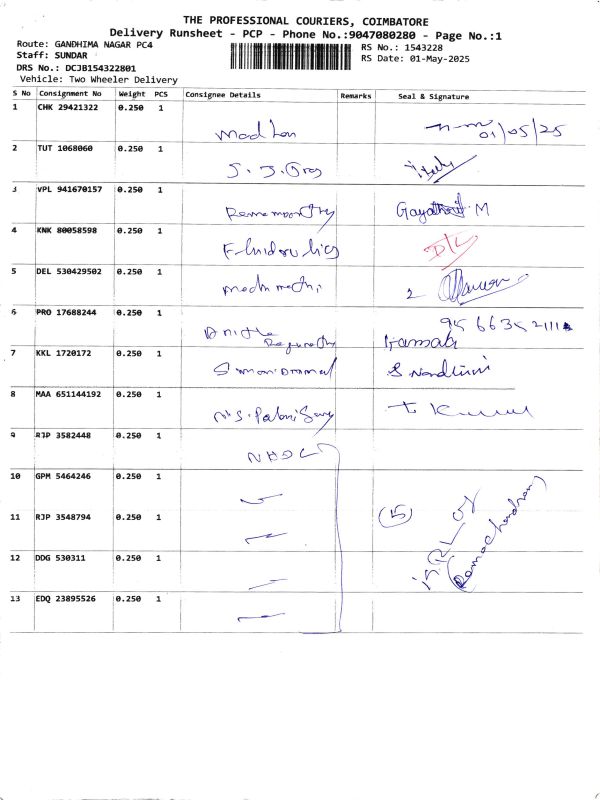 THE PROFESSIONAL COURIERS, COIMBATORE
Delivery Runsheet - PCP - Phone No.:9047080280 - Page No.:1
Route: GANDHIMA NAGAR PC4 RS No.: 1543228
Staff: SUNDAR RS Date: 01-May-2025
DRS No.: DCJB154322801
Vehicle: Two Wheeler Delivery
S No Consignment No Weight PCS Consignee Details Remarks Seal & Signature
1 CHK 29421322 0.250 1
01/05/25
2 TUT 1068060 0.250 1
3 VPL 941670157 0.250 1
Gayathri M
4 KNK 80058598 0.250 1
D/L
5 DEL 530429502 0.250 1
2
6 PRO 17688244 0.250 1
7 KKL 1720172 0.250 1
S Nandhini
8 MAA 651144192 0.250 1
9 RJP 3582448 0.250 1
10 GPM 5464246 0.250 1
11 RJP 3548794 0.250 1
15
12 DDG 530311 0.250 1
(Ramachandran)
13 EDQ 23895526 0.250 1